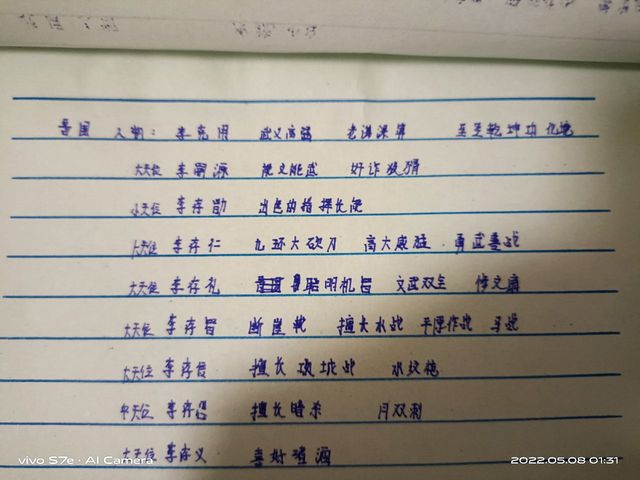 晋国 人物: 李克用 武义高强 老谋深算 至圣乾坤功 化境
大天位 李嗣源 能文能武 奸诈狡猾
小天位 李存勖 出色的指挥长使
大天位 李存仁 九环大砍刀 高大威猛 勇武善战
大天位 李存礼 聪明机智 文武双全
大天位 李存智 断崖枪 擅长水战 平原作战 马战
大天位 李存信 擅长攻城战 水纹枪
中天位 李存 擅长暗杀 月双刺
大天位 李存义 喜好 酒
vivo S7e · AI Camera 2022.05.08 01:31